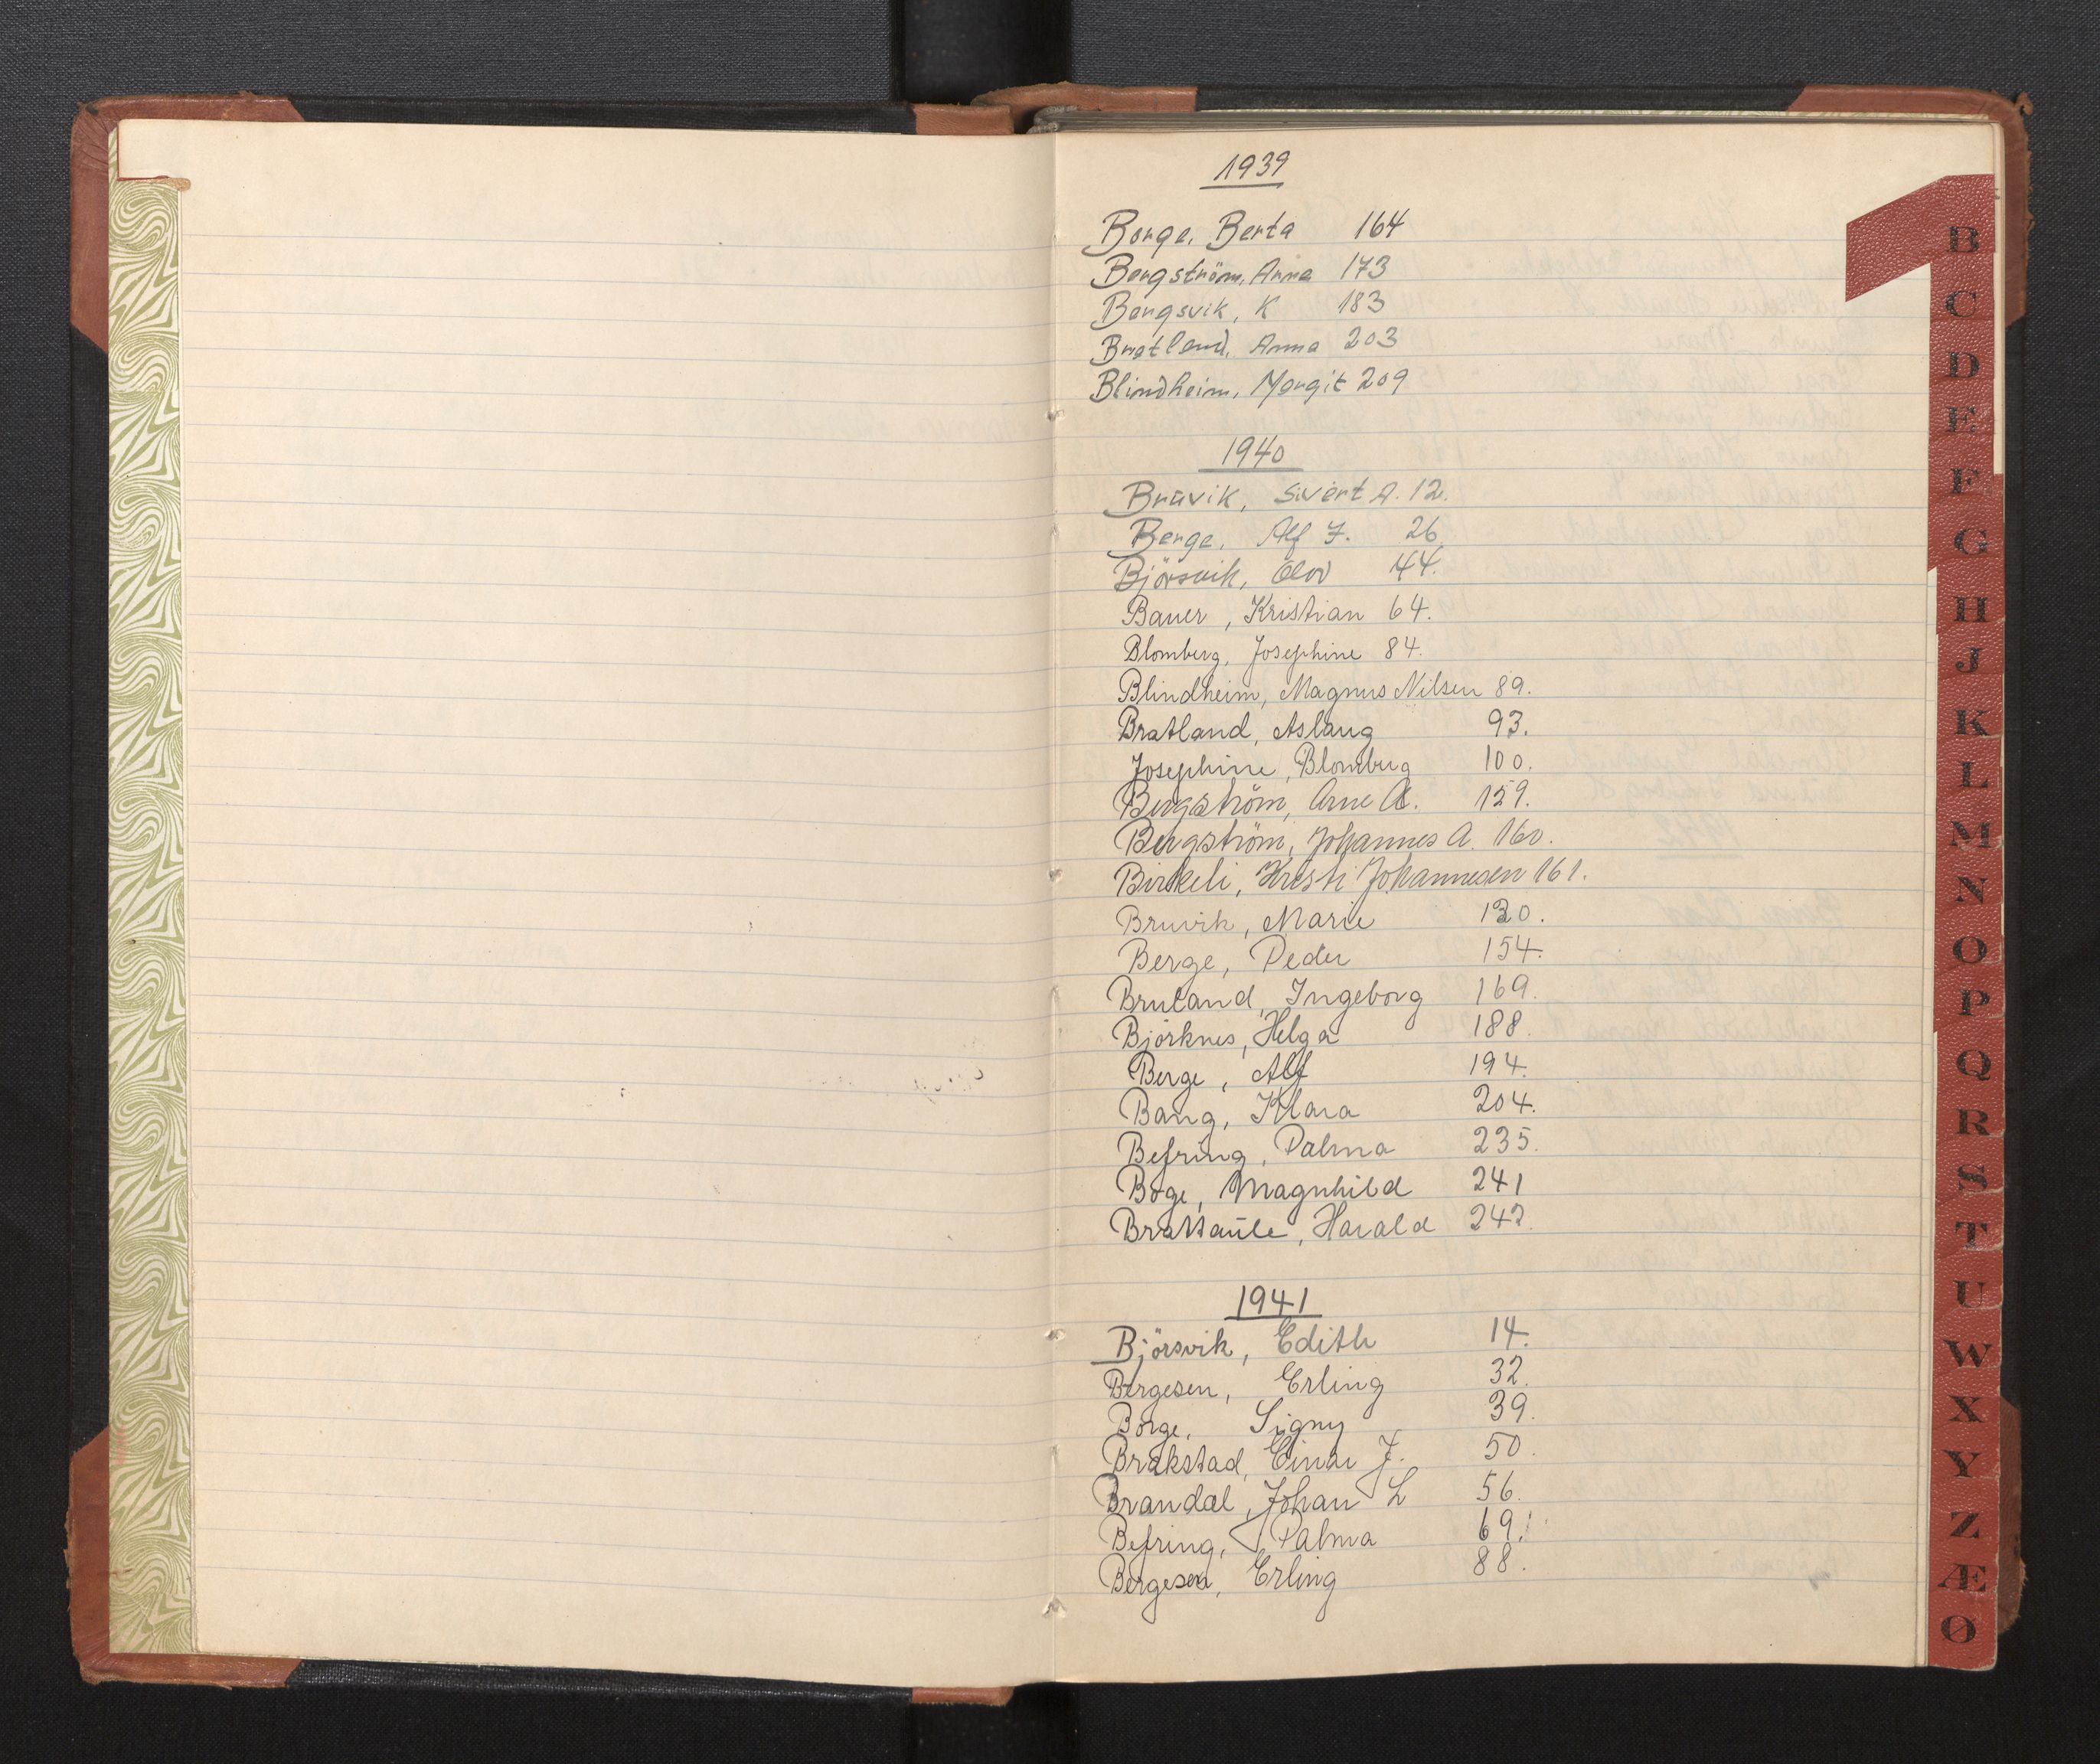 1939
Borge, Berta 164
Bergström, Anna 173
Bergsvik, K 183
Bratland, Anna 203
Blindheim, Margit 209
1940
Bruvik, Sivert A. 12.
Berge, Alf J. 26
Björsvik, Olov 44.
Bauer, Kristian 64.
Blomberg, Josephine 84.
Blindheim, Magnus Nilsen 89.
Bratland, Aslaug 93.
Josephine, Blomberg 100.
Bergström, Arne A. 159.
Bergström, Johannes A. 160.
Birkeli, Kristi Johannesen 161.
Bruvik, Marie 130.
Berge, Peder 154.
Bruland, Ingeborg 169.
Bjorknes, Helga 188.
Berge, Alf 194.
Bang, Klara 204.
Befring, Palma 235.
Boge, Magnhild 241
Brattaule, Harald 242.
1941
Björsvik, Edith 14.
Bergesen, Erling 32.
Borge, Signy 39.
Brakstad, Einar J. 50.
Brandal, Johan L 56.
Befring, Palma 69.
Bergesen, Erling 88.
B
C
D
E
F
G
H
J
K
L
M
N
O
P
Q
R
S
T
U
W
X
Y
Z
Æ
Ø